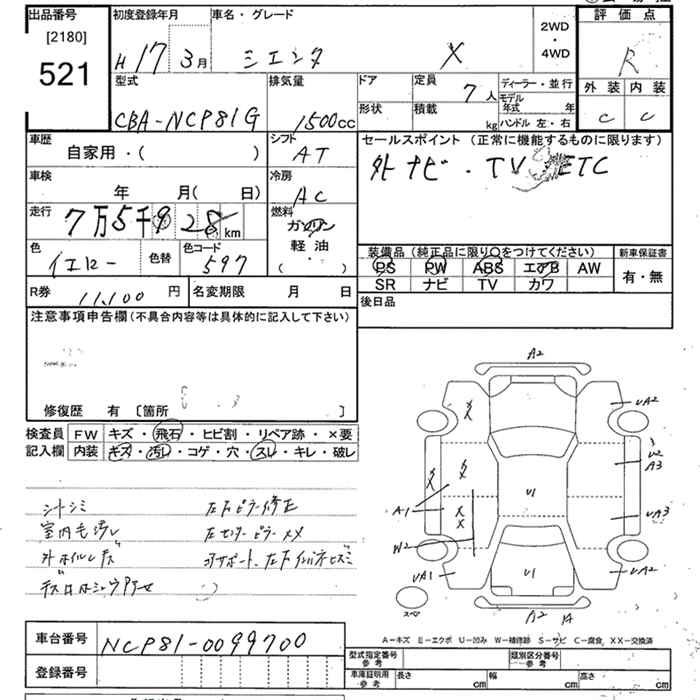 出品番号
[2180]
521
初度登録年月
H17年3月
車名・グレード
シエンタ X
2WD
・
4WD
評価点
R
外装 内装
C C
型式
CBA-NCP81G
排気量
1500cc
ドア
形状
定員
7人
積載
kg
ディーラー・並行
モデル年式 年
ハンドル 左・右
車歴
自家用・( )
シフト
AT
セールスポイント (正常に機能するものに限ります)
外 ナビ・TV ETC
車検
年 月( 日)
冷房
AC
走行
7万5千9 28 km
燃料
ガソリン
軽油
・
( )
色
イエロー
色替
色コード
597
装備品 (純正品に限り○をつけてください)
PS PW ABS エアB AW
SR ナビ TV カワ
新車保証書
有・無
R券
11,100円
名変期限 月 日
後日品
注意事項申告欄(不具合内容等は具体的に記入して下さい)
修復歴 有 [箇所 ]
検査員
記入欄
FW キズ・飛石・ヒビ割・リペア跡・×要
内装 キズ・汚レ・コゲ・穴・スレ・キレ・破レ
シートシミ 左Fピラー修正
室内毛汚レ 左センターピラーメメ
外ホイルキズ コアサポート、左Fインパネヒズミ
A2
UA2
U2
A3
XX
XX
XX
XX
A1
U1
UA3
W2
UA1
U1
UA2
A2
スペア
A-キズ E-エクボ U-凹み W-補修跡 S-サビ C-腐食 XX-交換済
車台番号
NCP81-0099700
登録番号
型式指定番号
参考
類別区分番号
参考
車庫証明用
参考
長さ cm 幅 cm 高さ cm